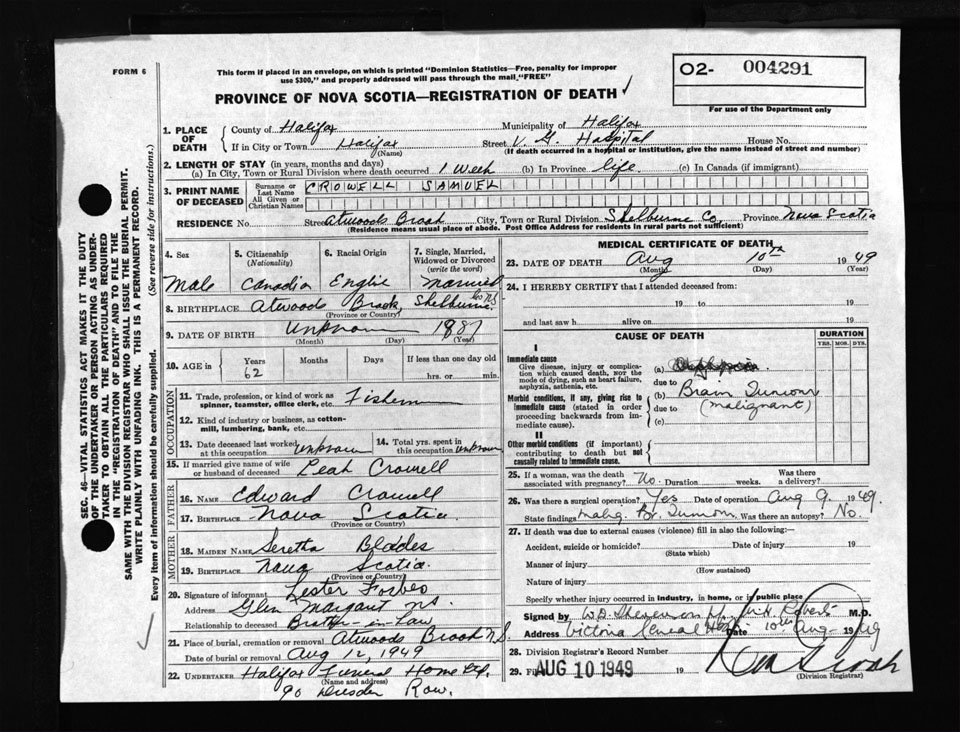 FORM 6
This form if placed in an envelope, on which is printed "Dominion Statistics—Free, penalty for improper
use $300," and properly addressed will pass through the mail "FREE"
PROVINCE OF NOVA SCOTIA—REGISTRATION OF DEATH
O2- 004291
For use of the Department only
SEC. 46—VITAL STATISTICS ACT MAKES IT THE DUTY
OF THE UNDERTAKER OR PERSON ACTING AS UNDER-
TAKER TO OBTAIN ALL THE PARTICULARS REQUIRED
IN THE "REGISTRATION OF DEATH" AND TO FILE THE
SAME WITH THE DIVISION REGISTRAR WHO SHALL ISSUE THE BURIAL PERMIT.
WRITE PLAINLY WITH UNFADING INK. THIS IS A PERMANENT RECORD.
Every item of information should be carefully supplied. (See reverse side for instructions.)
1. PLACE OF DEATH
County of Halifax Municipality of Halifax
If in City or Town Halifax Street V. G. Hospital House No.
(Name) (If death occurred in a hospital or institution, give the name instead of street and number)
2. LENGTH OF STAY (in years, months and days)
(a) In City, Town or Rural Division where death occurred 1 Week (b) In Province life (c) In Canada (if immigrant)
3. PRINT NAME OF DECEASED
Surname or Last Name CROWELL SAMUEL
All Given or Christian Names
RESIDENCE No. Street Atwoods Brook City, Town or Rural Division Shelburne Co. Province Nova Scotia
(Residence means usual place of abode. Post Office Address for residents in rural parts not sufficient)
4. Sex 5. Citizenship (Nationality) 6. Racial Origin 7. Single, Married, Widowed or Divorced (write the word)
Male Canadian English married
8. BIRTHPLACE Atwoods Brook, Shelburne Co N S
(Province or Country)
9. DATE OF BIRTH Unknown 1887
(Month) (Day) (Year)
10. AGE in Years Months Days If less than one day old
62 hrs. or min.
OCCUPATION
11. Trade, profession, or kind of work as spinner, teamster, office clerk, etc.
12. Kind of industry or business, as cotton-mill, lumbering, bank, etc.
13. Date deceased last worked at this occupation Unknown 14. Total yrs. spent in this occupation Unknown
15. If married give name of wife or husband of deceased Leah Crowell
FATHER
16. NAME Edward Crowell
17. BIRTHPLACE Nova Scotia
(Province or Country)
MOTHER
18. MAIDEN NAME Seretha Blades
19. BIRTHPLACE Nova Scotia
(Province or Country)
20. Signature of informant Lester Forbes
Address Glen Margaret NS.
Relationship to deceased Brother-in-law
21. Place of burial, cremation or removal Atwoods Brook N.S.
Date of burial or removal Aug 12, 1949
22. UNDERTAKER Halifax Funeral Home Ltd.
(Name and address)
90 Dresden Row.
MEDICAL CERTIFICATE OF DEATH
23. DATE OF DEATH Aug 10th 1949
(Month) (Day) (Year)
24. I HEREBY CERTIFY that I attended deceased from:
19 to 19
and last saw h alive on 19
CAUSE OF DEATH DURATION
YRS. MOS. DYS.
I
Immediate cause
Give disease, injury or complication which caused death, not the mode of dying, such as heart failure, asphyxia, asthenia, etc.
(a)
due to
Morbid conditions, if any, giving rise to immediate cause (stated in order proceeding backwards from immediate cause).
(b) Brain Tumour
due to (malignant)
(c)
II
Other morbid conditions (if important) contributing to death but not causally related to immediate cause.
25. If a woman, was the death associated with pregnancy? No. Duration weeks. Was there a delivery?
26. Was there a surgical operation? Yes Date of operation Aug 9. 1949.
State findings Malig. Br. Tumour Was there an autopsy? No.
27. If death was due to external causes (violence) fill in also the following:—
Accident, suicide or homicide? Date of injury 19
(State which)
Manner of injury
(How sustained)
Nature of injury
Specify whether injury occurred in industry, in home, or in public place
Signed by M.D.
Address Victoria General Hosp. Date 10th Aug 1949
28. Division Registrar's Record Number
29. AUG 10 1949 19
(Division Registrar)